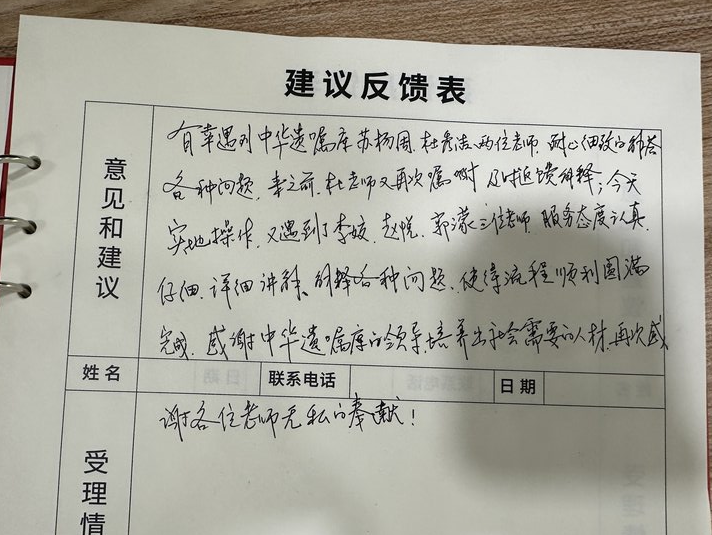 建议反馈表
意见和建议
有幸遇到中华遗嘱库苏杨周、杜彦洁两位老师,耐心细致的解答
各种问题,来之前,杜老师又再次嘱咐及时反馈解释;今天
实地操作,又遇到了李姣、赵悦、郭濛三位老师服务态度认真、
仔细、详细讲解、解释各种问题、使得流程顺利圆满
完成,感谢中华遗嘱库的领导,培养出社会需要的人材,再次感
姓名 联系电话 日期
谢各位老师无私的奉献!
受理情